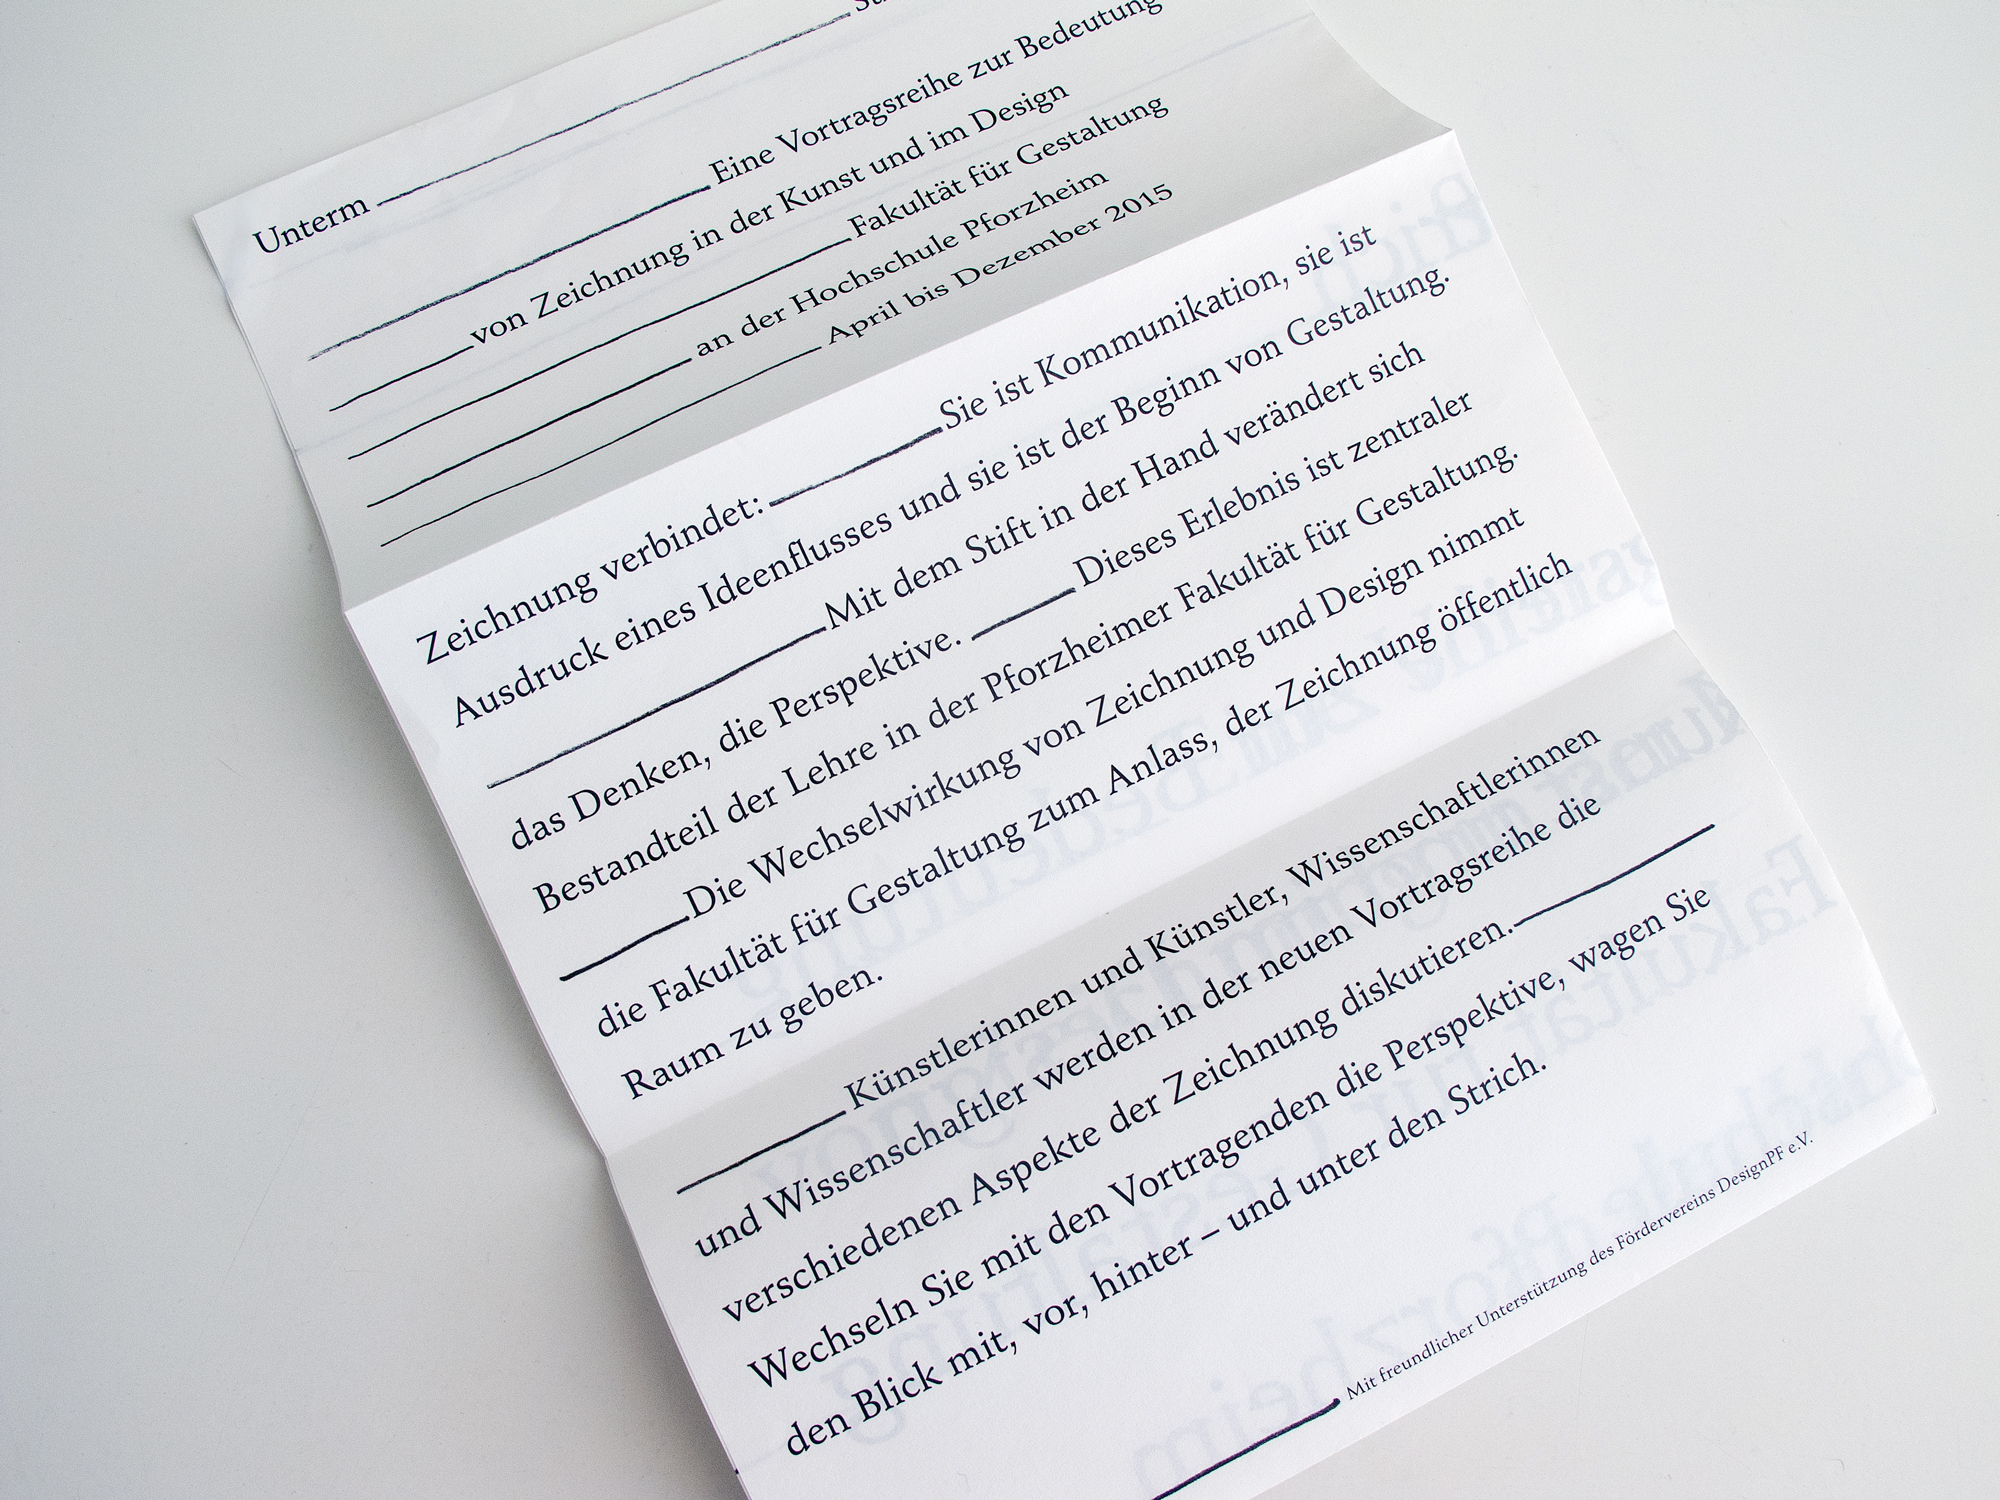 Unterm
Eine Vortragsreihe zur Bedeutung
von Zeichnung in der Kunst und im Design
Fakultät für Gestaltung
an der Hochschule Pforzheim
April bis Dezember 2015
Zeichnung verbindet: Sie ist Kommunikation, sie ist
Ausdruck eines Ideenflusses und sie ist der Beginn von Gestaltung.
Mit dem Stift in der Hand verändert sich
das Denken, die Perspektive. Dieses Erlebnis ist zentraler
Bestandteil der Lehre in der Pforzheimer Fakultät für Gestaltung.
Die Wechselwirkung von Zeichnung und Design nimmt
die Fakultät für Gestaltung zum Anlass, der Zeichnung öffentlich
Raum zu geben.
Künstlerinnen und Künstler, Wissenschaftlerinnen
und Wissenschaftler werden in der neuen Vortragsreihe die
verschiedenen Aspekte der Zeichnung diskutieren.
Wechseln Sie mit den Vortragenden die Perspektive, wagen Sie
den Blick mit, vor, hinter – und unter den Strich.
Mit freundlicher Unterstützung des Fördervereins DesignPF e.V.